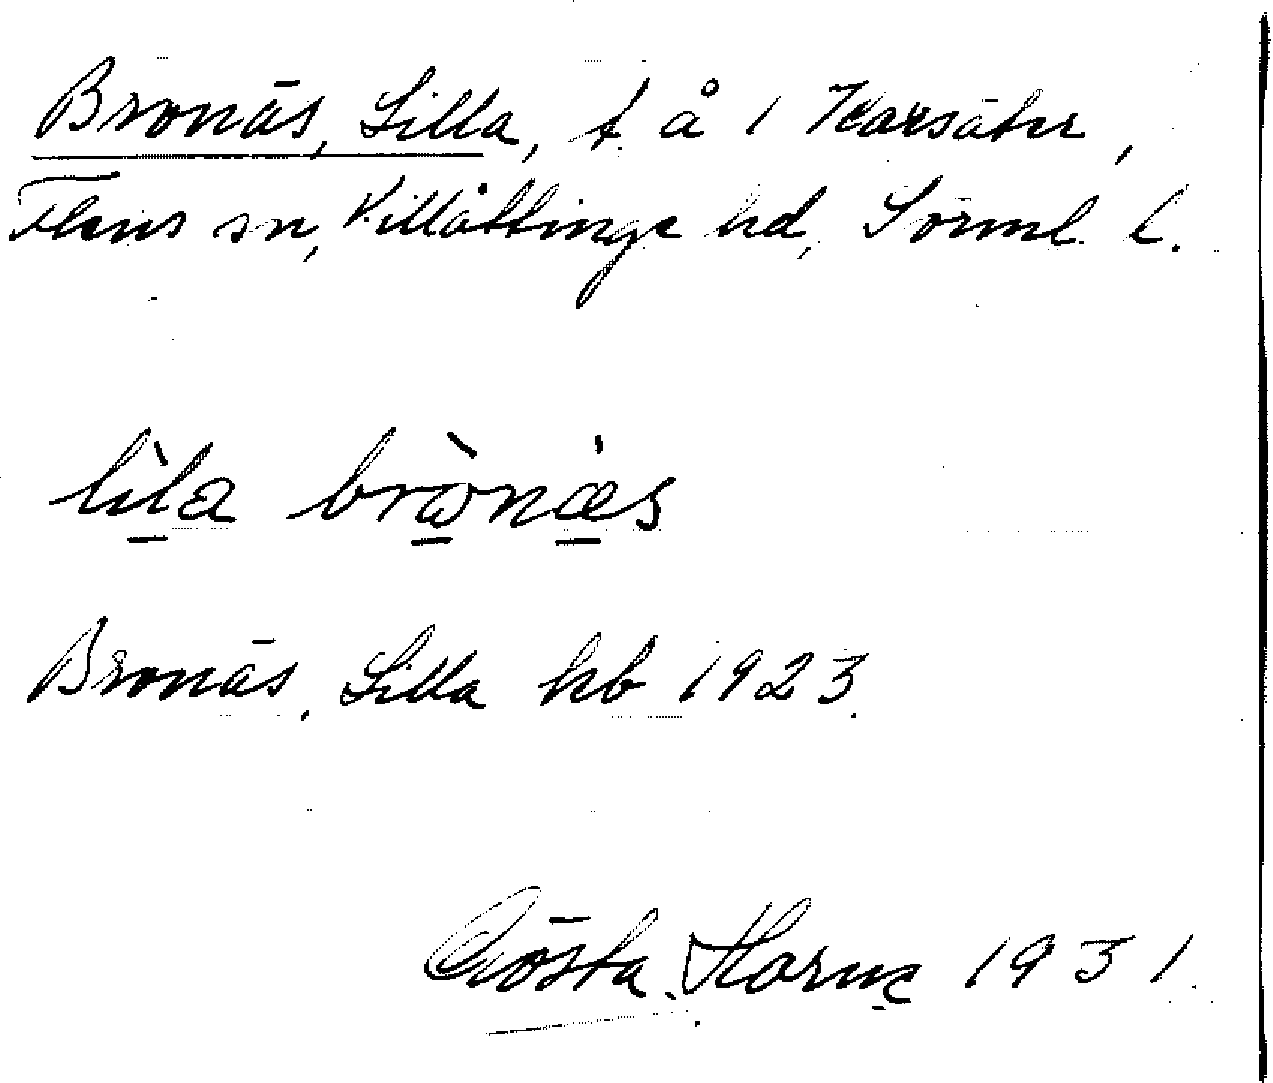 Bronäs, Lilla, t. å 1 Harsäter,
Flens sn, Villåttinge hd, Sörml. l.
lìla brònæs
Bronäs, Lilla kb 1923.
Gösta Horne 1931.